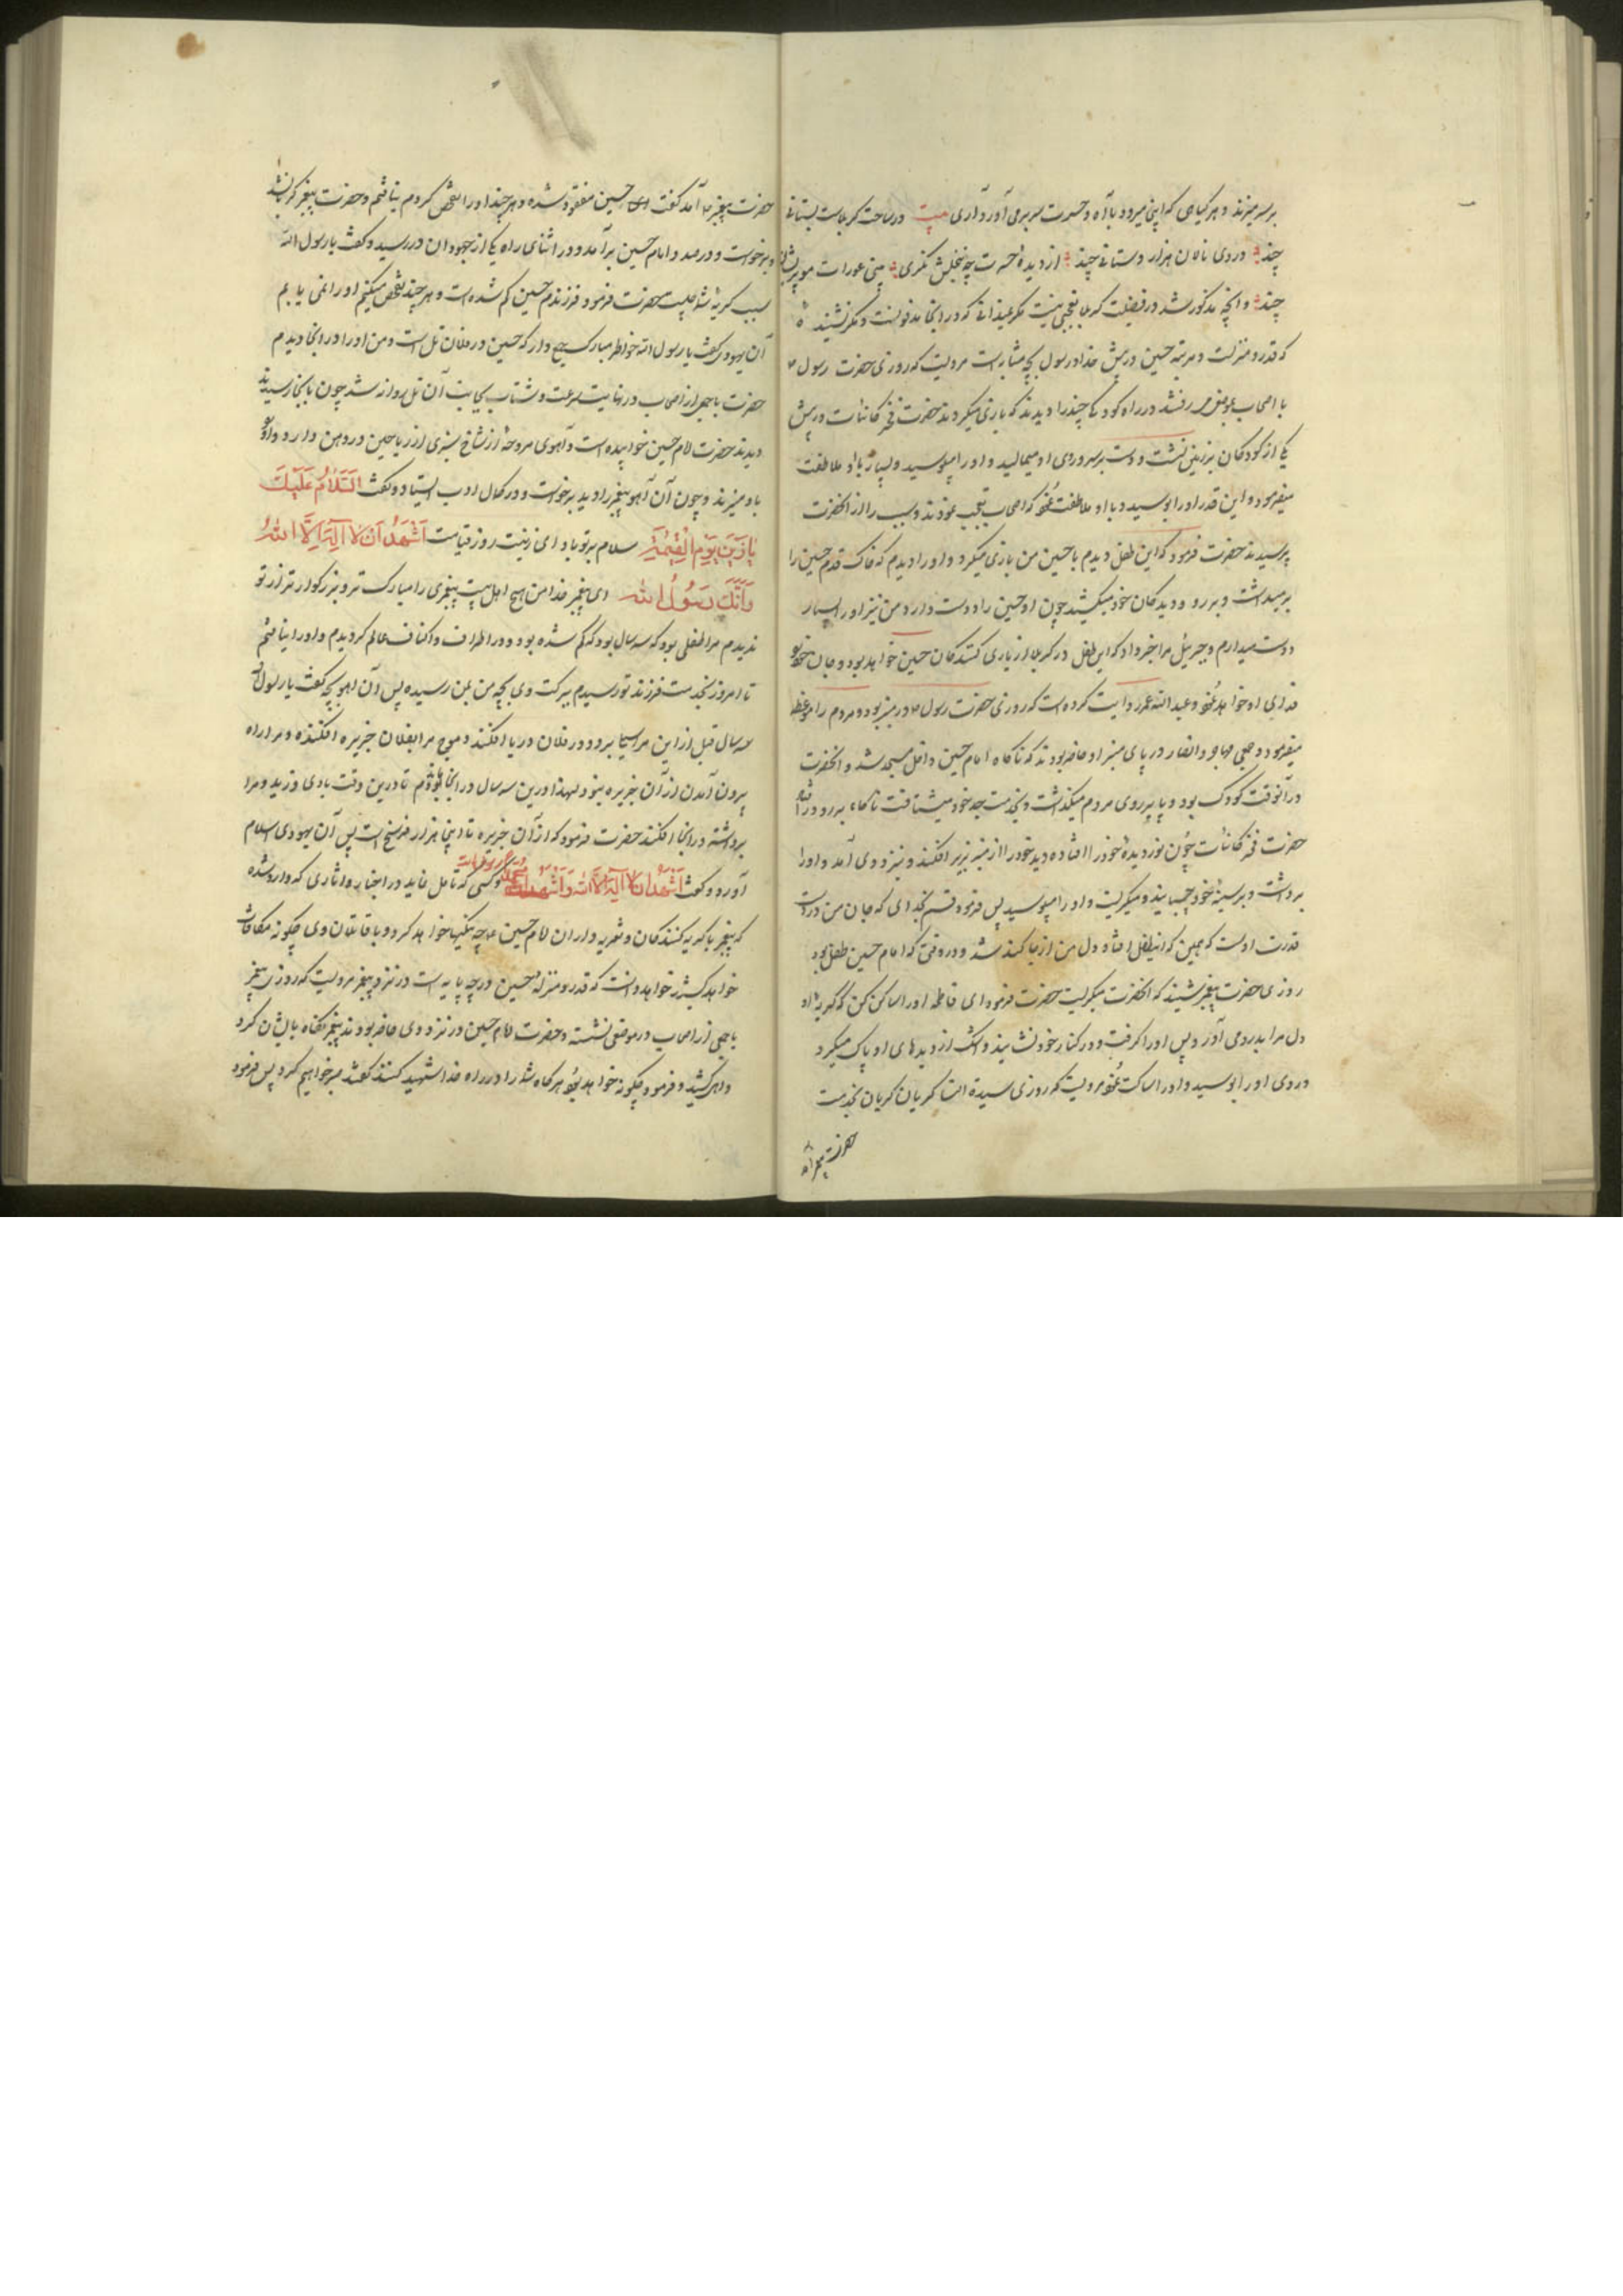 بر سر میزند و هر کیاهی که اینجا میرود با آه و حسرت سر برمی آورد آری بیت در ساحت کربلاست بستانی
چند وز روی نادان هزار دستانی چند از دیده حسرت چو بنخلش نکری بینی عورات مو پریشانی
چند و آنچه مذکور شد در فضیلت کربلا تعجبی نیست مکر عزیزانی که در آنجا مدفونست و مکر نشنیده
که قدر و منزلت و مرتبه حسین در پیش خدا و رسول بچه مثابه است مرویست که روزی حضرت رسول
با اصحاب بموضعی میرفتند در راه کودکی چند را دیدند که بازی میکردند حضرت فخر کاینات در پیش
یکی از کودکان بر زمین نشست و دست بر سر و روی او میمالید و او را میبوسید و بسیار با او ملاطفت
میفرمود و این قدر او را بوسید و با او ملاطفت نمود که اصحاب تعجب نمودند و سبب را از آنحضرت
پرسیدند حضرت فرمود که این طفل دیدم با حسین من بازی میکرد و او را دیدم که خاک قدم حسین را
برمیداشت و بر رو و دیدکان خود میکشید چون او حسین را دوست دارد من نیز او را بسیار
دوست میدارم و جبرئیل مرا خبر داد که این طفل در کربلا از یاری کنندکان حسین خواهد بود و جان خود
فدای او خواهد نمود و عبدالله عمر روایت کرده است که روزی حضرت رسول در منبر بود و مردم را موعظه
میفرمود و جمعی مهاجر و انصار در پای منبر او حاضر بودند که ناکاه امام حسین داخل مسجد شد و آنحضرت
در آنوقت کودک بود و پا بر روی مردم میکذاشت و بخدمت جد خود میشتافت ناکاه برو درافتاد
حضرت فخر کاینات چون نور دیده خود را افتاده دید خود را از منبر بزیر افکند و بنزد وی آمد و او را
برداشت و بر سینه خود چسبانید و میکریست و او را میبوسید پس فرمود قسم بخدای که جان من در دست
قدرت اوست که همین که این طفل افتاد دل من از جا کنده شد و در وقتی که امام حسین طفل بود
روزی حضرت پیغمبر شنید که آنحضرت میکریست حضرت فرمود ای فاطمه او را ساکن کن که کریه او
دل مرا بدرد می آورد پس او را کرفت و در کنار خود نشانید و اشک از دیدهای او پاک میکرد
و روی او را بوسید و او را ساکت نمود مرویست که روزی سیدة النسا کریان کریان بخدمت
حضرت پیغمبر آمد
حضرت پیغمبر آمد کفت حسین مفقود شده و هر چند او را تفحص کردم نیافتم و حضرت پیغمبر کریان شد
و برخواست و در صدد امام حسین برآمد و در اثنای راه یکی از جهودان در رسید و کفت یا رسول الله
سبب کریه شما چیست حضرت فرمود فرزندم حسین کم شده است و هر چند تفحص میکنم او را نمی یابم
آن یهودی کفت یا رسول الله خواطر مبارک جمع دار که حسین در فلان تل است و من او را در آنجا دیدم
حضرت با جمعی از اصحاب در نهایت سرعت و شتاب بجانب آن تل روانه شد چون بآنجا رسیدند
دیدند حضرت امام حسین خوابیده است و آهوی مروحه از شاخ سبزی از ریاحین در دهن دارد و او را
باد میزند و چون آن آهو پیغمبر را دید برخواست و در کمال ادب ایستاد و کفت السَّلامُ عَلَیْکَ
یا زَیْنَ یَوْمِ الْقِیمَةِ سلام بر تو باد ای زینت روز قیامت اَشْهَدُ اَنْ لا اِلهَ اِلَّا اللهُ
وَ اَنَّکَ رَسُولُ اللهِ ای پیغمبر خدا من هیچ اهل بیت پیغمبری را مبارک تر و بزرکوارتر از تو
ندیدم مرا طفلی بود که سه سال بود که کم شده بود و در اطراف و اکناف عالم کردیدم و او را نیافتم
تا امروز بخدمت فرزند تو رسیدم ببرکت وی بچه من بمن رسیده پس آن آهو بچه کفت یا رسول الله
سه سال قبل از این مرا سیلاب برد و در فلان دریا افکند و موج مرا بفلان جزیره افکنده و مرا راه
بیرون آمدن از آن جزیره نبود لهذا درین سه سال در آنجا بودم تا درین وقت بادی وزید و مرا
برداشته در اینجا افکند حضرت فرمود که از آن جزیره تا اینجا هزار فرسخ است پس آن یهودی اسلام
آورد و کفت اَشْهَدُ اَنْ لا اِلهَ اِلَّا الله وَ اَشْهَدُ اَنَّ کسی که تامل نماید در اخبار و آثاری که وارد شده
که پیغمبر با کریه کنندکان و تعزیه داران امام حسین چه نیکیها خواهد کرد و با قاتلان وی چکونه مکافات
خواهد کشید خواهد دانست که قدر و منزله حسین در چه پایه است در نزد پیغمبر مرویست که روزی پیغمبر
با جمعی از اصحاب در موضعی نشسته و حضرت امام حسین در نزد وی حاضر بودند پیغمبر نکاه بایشان کرد
و آهی کشید و فرمود چکونه خواهد بود هر کاه شما را در راه خدا شهید کنند کفتند صبر خواهیم کرد پس فرمود